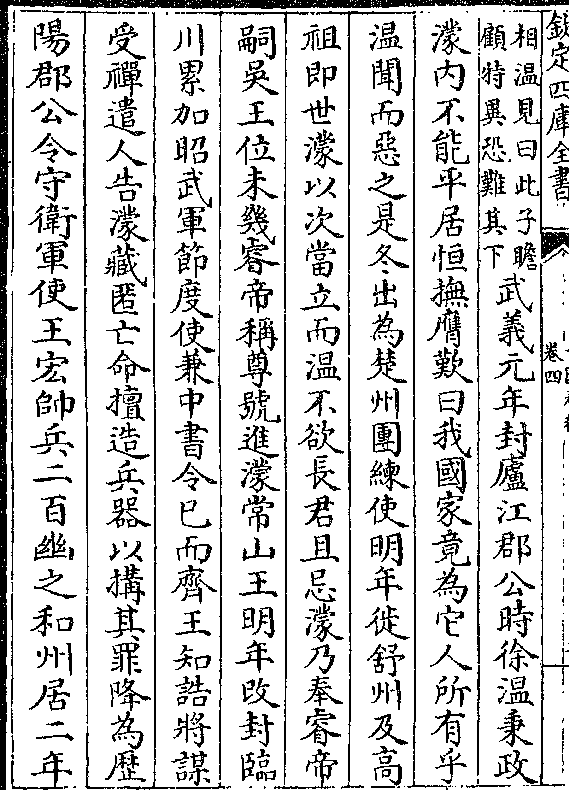 欽定四庫全書
卷四
相溫見曰此子瞻
顧特異恐難其下
武義元年封廬江郡公時徐溫秉政
濛内不能平居恒撫膺歎曰我國家竟為它人所有乎
温聞而惡之是冬出為楚州團練使明年徙舒州及高
祖即世濛以次當立而温不欲長君且忌濛乃奉睿帝
嗣吳王位未幾睿帝稱尊號進濛常山王明年改封臨
川累加昭武軍節度使兼中書令已而齊王知誥將謀
受禪遣人告濛藏匿亡命擅造兵器以搆其罪降為歴
陽郡公令守衛軍使王宏帥兵二百幽之和州居二年